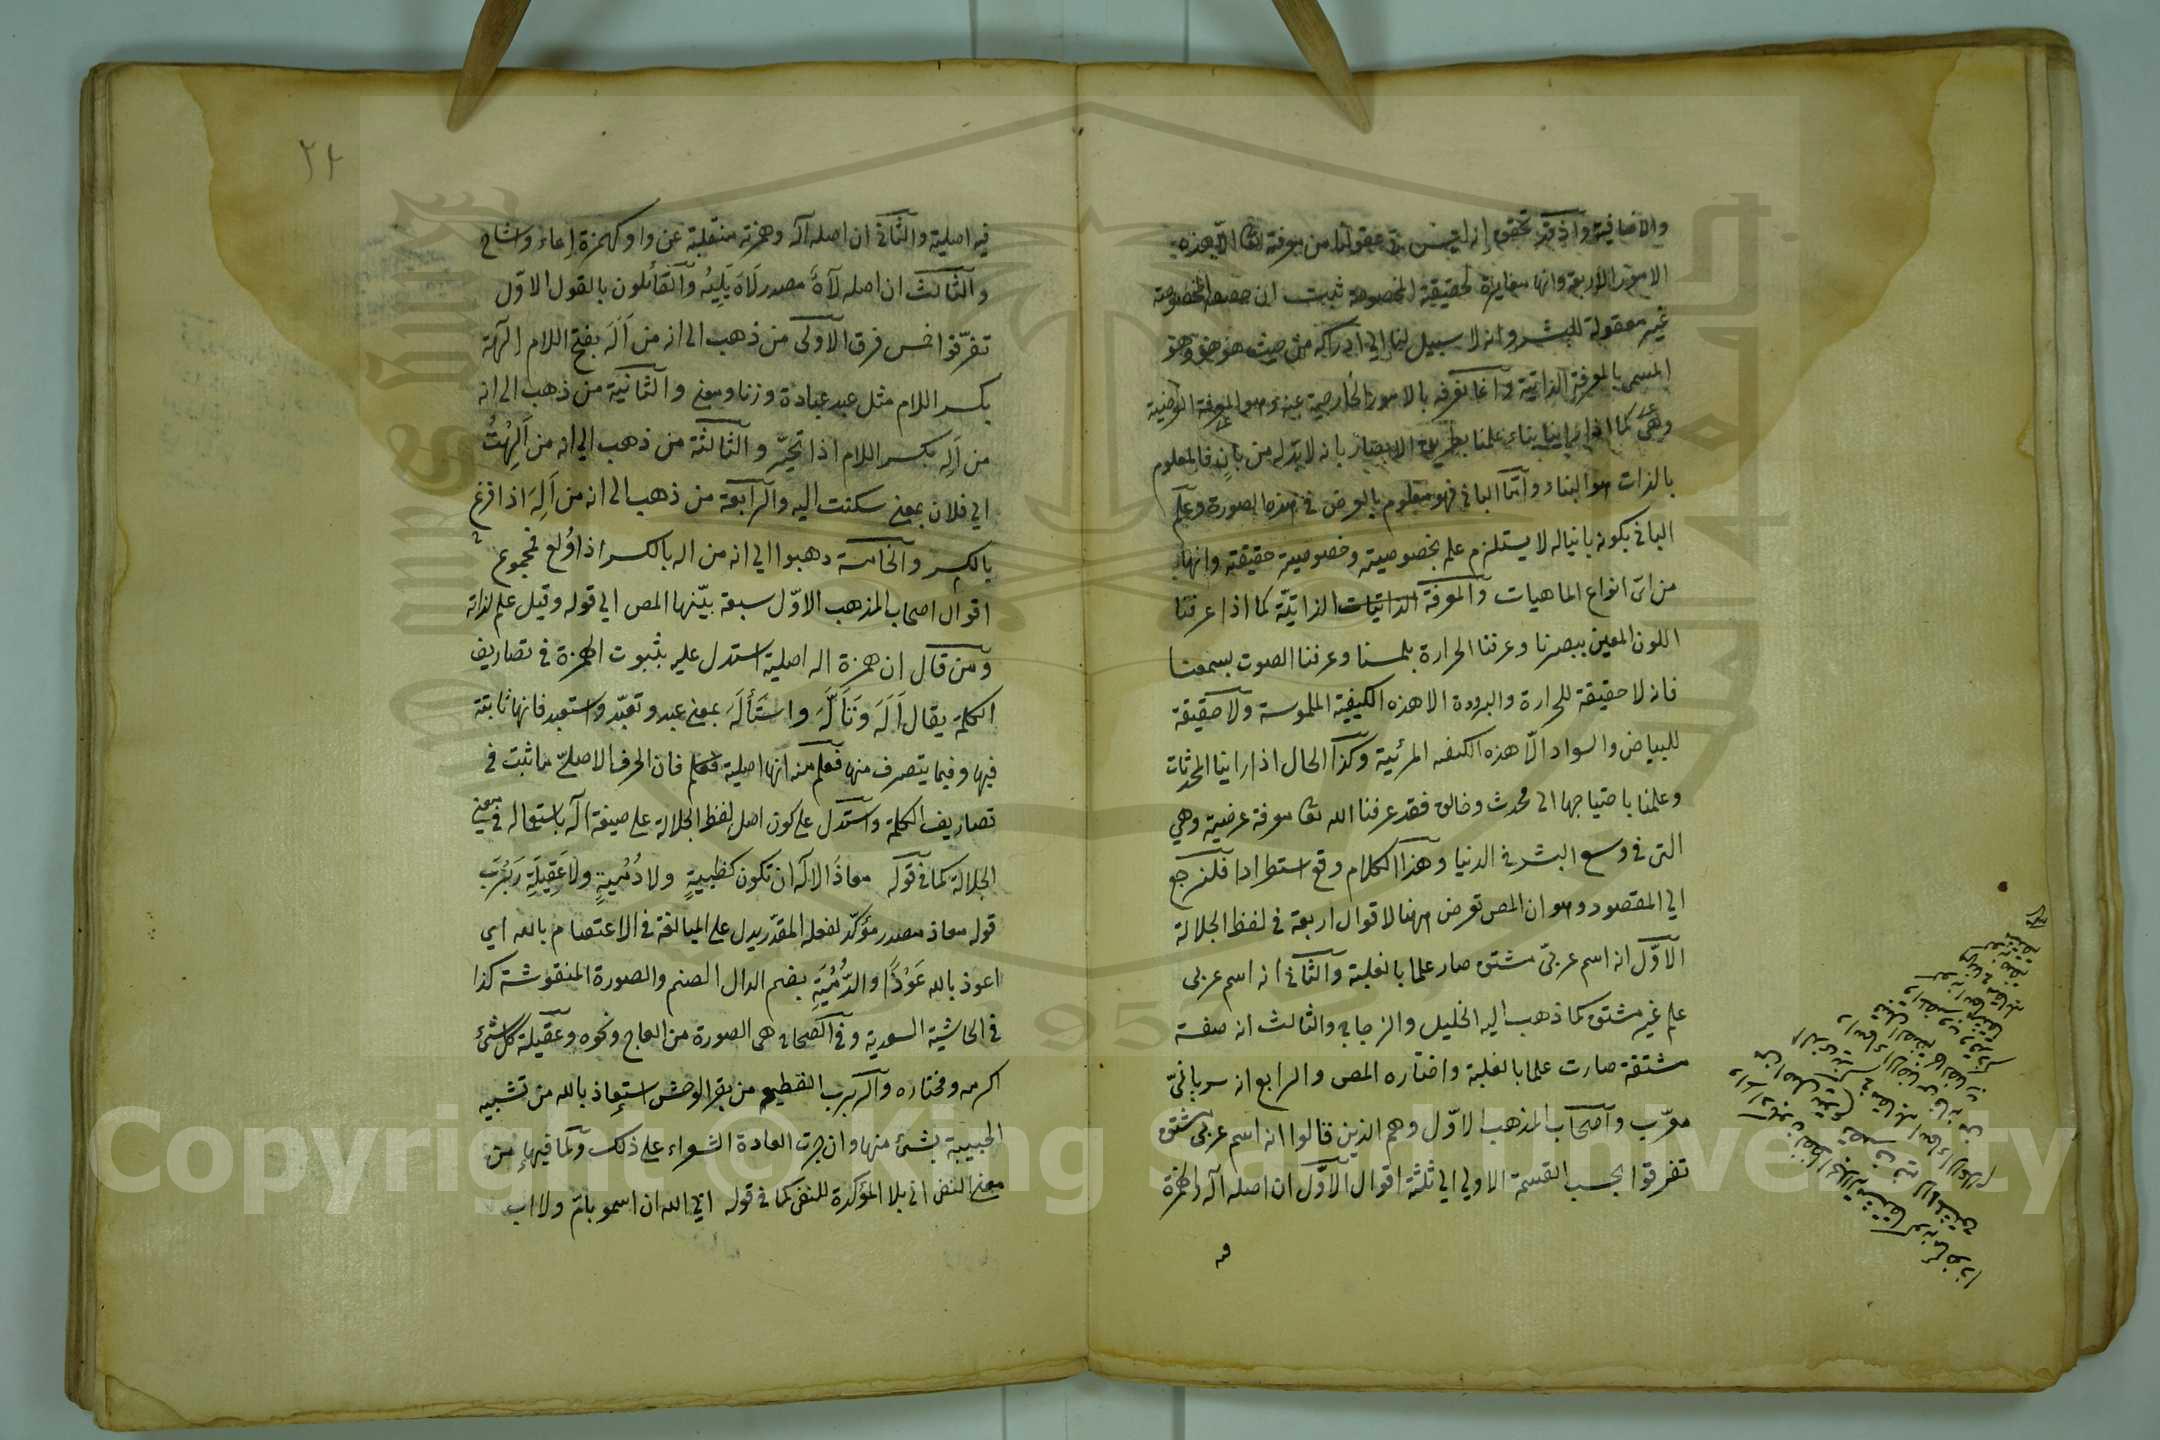 والاضافية واذ قد تحقق انه ليس في عقولنا من معرفة الله تعالى الا هذه
الامور الاربعة وانها مغايرة للحقيقة المخصوصة ثبت ان حقيقته المخصوصة
غير معقولة للبشر وانه لا سبيل لنا الى ادراكه من حيث هو هو وهو
المسمى بالمعرفة الذاتية وانما نعرفه بالامور الخارجية عنه وهو المعرفة العرضية
وهي كما اذا راينا بناء علمنا بطريق الابصار بانه لا بد له من بان فالمعلوم
بالذات هو البناء واما الباني فهو معلوم بالعرض في هذه الصورة وعلم
الباني بكونه بانيا له لا يستلزم علمه بخصوصيته وخصوصية حقيقته وانها
من اى انواع الماهيات والمعرفة الذاتيات الذاتية كما اذا عرفنا
اللون المعين ببصرنا وعرفنا الحرارة بلمسنا وعرفنا الصوت بسمعنا
فانه لا حقيقة للحرارة والبرودة الا هذه الكيفية الملموسة ولا حقيقة
للبياض والسواد الّا هذه الكيفه المرئية وكذا الحال اذا راينا المحدثات
وعلمنا باحتياجها الى محدث وخالق فقد عرفنا الله تعا معرفة عرضية وهي
التى في وسع البشر في الدنيا وهذا الكلام وقع استطرادا فلنرجع
الي المقصود وهو ان المص تعرض ههنا لاقوال اربعة في لفظ الجلالة
الاوّل انه اسم عربيّ مشتق صار علما بالغلبة والثاني انه اسم عربى
علم غير مشتق كما ذهب اليه الخليل والزجاج والثالث انه صفة
مشتقة صارت علما بالغلبة واختاره المص والرابع انه سريانيّ
معرّب واصحاب المذهب الاوّل وهم الذين قالوا انه اسم عربى مشتق
تفرقوا بحسب القسمة الاولي الي ثلثة اقوال الاوّل ان اصله اله والهمزة
فيه
٢٤
فيه اصلية والثاني ان اصله اله وهمزته منقلبة عن واو كهمزة اعاء واشاح
والثالث ان اصله لَاهٌ مصدر لَاهَ يَلِيهُ والقائلون بالقول الاوّل
تفرّقوا خمس فرق الاولى من ذهب الى انه من اَلَهَ بفتح اللام الهة
بكسر اللام مثل عبد عبادة وزنا ومعنى والثانية من ذهب الى انه
من اَلِه بكسر اللام اذا تحيّر والثالثة من ذهب الي انه من اَلِهْتُ
الي فلان بمعنى سكنت اليه والرابعة من ذهب الى انه من اَلِهَ اذا فزغ
بالكسر والخامسة ذهبوا الي انه من اله بالكسر اذا اُولع فمجموع
اقوال اصحاب المذهب الاوّل سبعة بيّنها المص الي قوله وقيل علم لذاته
ومن قال ان همزة اله اصلية استدل عليه بثبوت الهمزة في تصاريف
الكلمة يقال اَلَهَ وَتَأَلَّهَ واستَأْلَهَ بمعنى عبد وتعبّد واستعبد فانها ثابتة
فيها وفيما يتصرف منها فعلم منه انها اصلية فعلم فان الحرف الاصليّ ما ثبت في
تصاريف الكلمة واستدل على كون اصل لفظ الجلالة على صيغة اله باستعماله في معنى
الجلالة كما في قوله معاذَ الاله ان تكون كظبيةٍ ولا دُمْيةٍ ولا عَقِيلَةِ رَبْرَبِ
قوله معاذ مصدر مؤكّد لفعله المقدّر يدل على المبالغة في الاعتصام بالله اي
اعوذ بالله عَوْذًا والدُّمْيَةِ بضم الدال الصنم والصورة المنقوشة كذا
في الحاشية السعدية وفي الصحاح هى الصورة من العاج ونحوه وعقيلة كل شئ
اكرمه ومختاره والربرب القطيع من بقر الوحش استعاذ بالله من تشبيه
الحبيبة بشئ منها وان جرت العادة الشعراء على ذلك ولما فيها من
معنى النفى اتى بلا المؤكدة للنفى كما في قوله ابي الله ان اسمو بامّ ولا اب